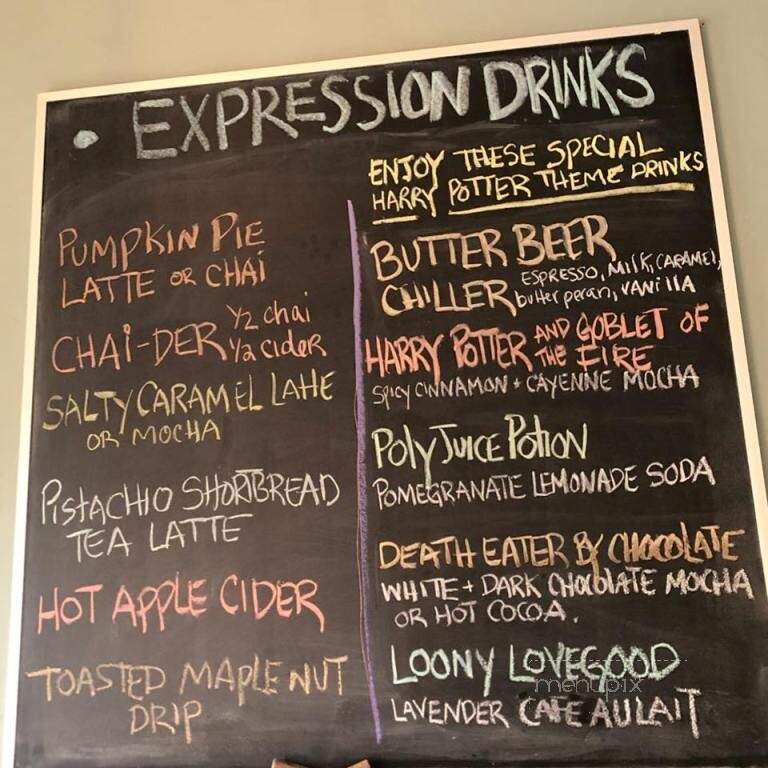 • EXPRESSION DRINKS
PUMPKIN PIE
LATTE OR CHAI
CHAI-DER 1/2 chai
1/2 cider
SALTY CARAMEL LATTE
OR MOCHA
PISTACHIO SHORTBREAD
TEA LATTE
HOT APPLE CIDER
TOASTED MAPLE NUT
DRIP
ENJOY THESE SPECIAL
HARRY POTTER THEME DRINKS
BUTTER BEER
CHILLER ESPRESSO, MILK, CARAMEL,
butter pecan, VANILLA
HARRY POTTER AND GOBLET OF
THE FIRE
SPICY CINNAMON + CAYENNE MOCHA
POLY JUICE POTION
POMEGRANATE LEMONADE SODA
DEATH EATER BY CHOCOLATE
WHITE + DARK CHOCOLATE MOCHA
OR HOT COCOA.
LOONY LOVEGOOD
menupix
LAVENDER CAFE AULAIT